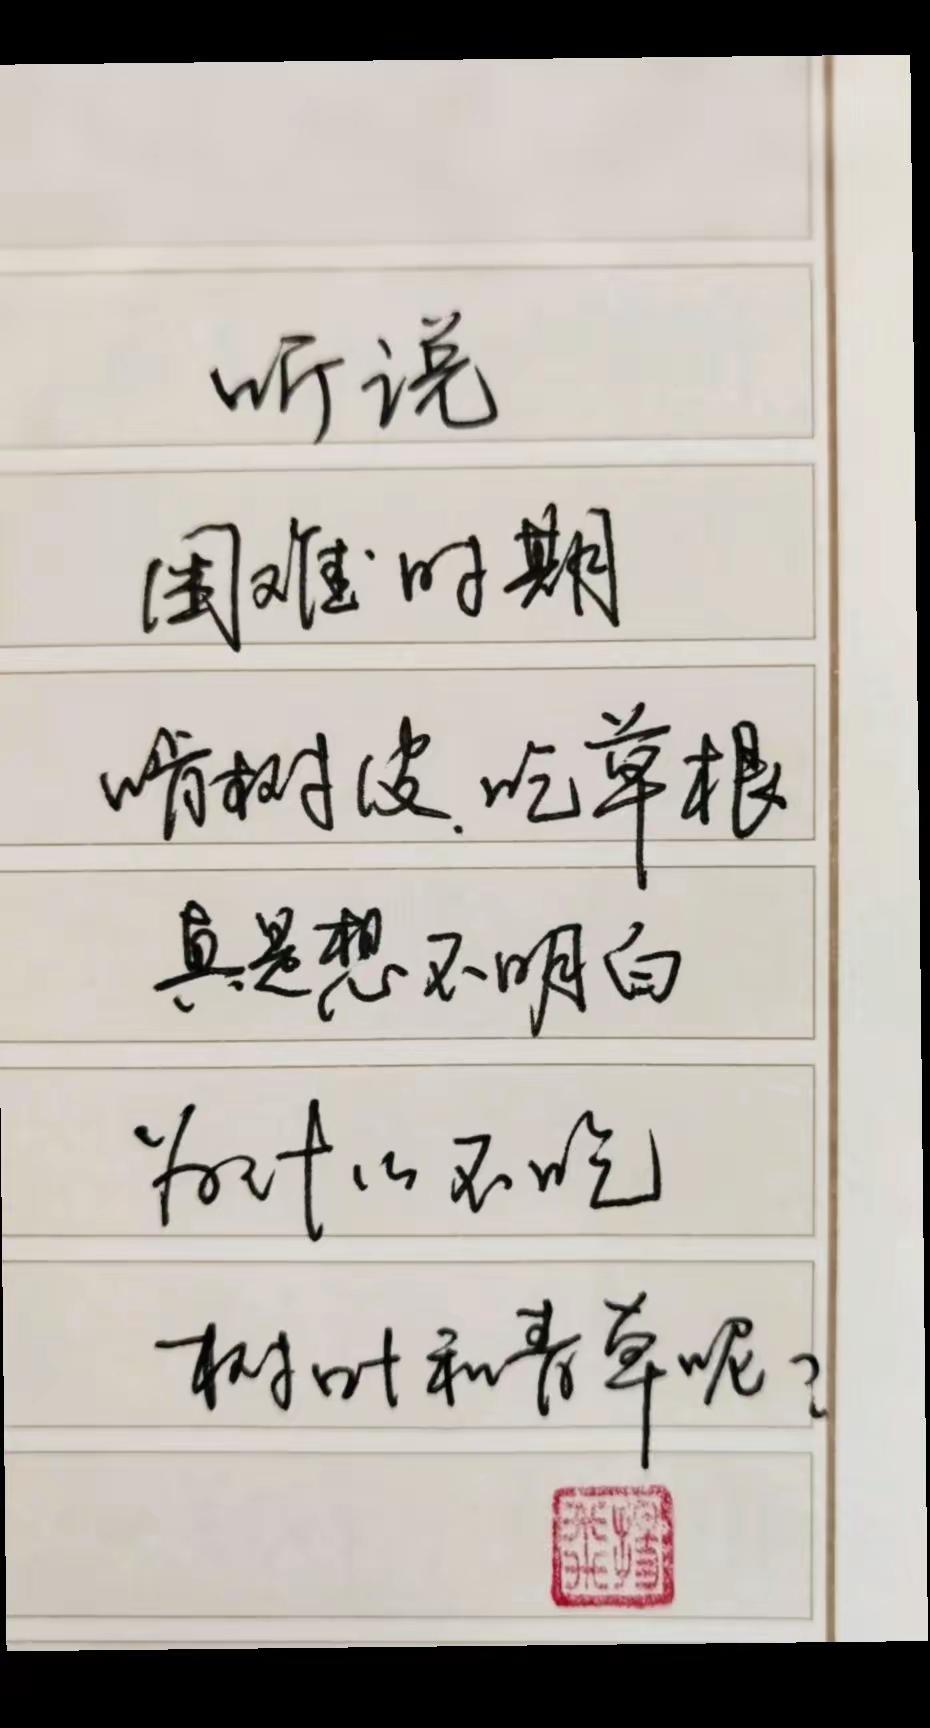 听说
困难时期
啃树皮.吃草根
真是想不明白
为什么不吃
树叶和青草呢?